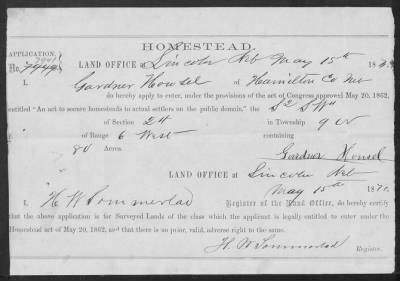 HOMESTEAD.
APPLICATION.
7941
No. 7949
LAND OFFICE at Lincoln Neb May 15th 187
I, Gardner Housel of Hamilton Co Neb
do hereby apply to enter, under the provisions of the act of Congress approved May 20, 1862,
entitled "An act to secure homesteads to actual settlers on the public domain," the S2 SW4
of Section 24 in Township 9 N
of Range 6 West containing
80 Acres.
Gardner Housel
LAND OFFICE at Lincoln Neb
May 15th 187
I, H W Sommerlad Register of the Land Office, do hereby certify
that the above application is for Surveyed Lands of the class which the applicant is legally entitled to enter under the
Homestead act of May 20, 1862, and that there is no prior, valid, adverse right to the same.
H. W Sommerlad
Register.